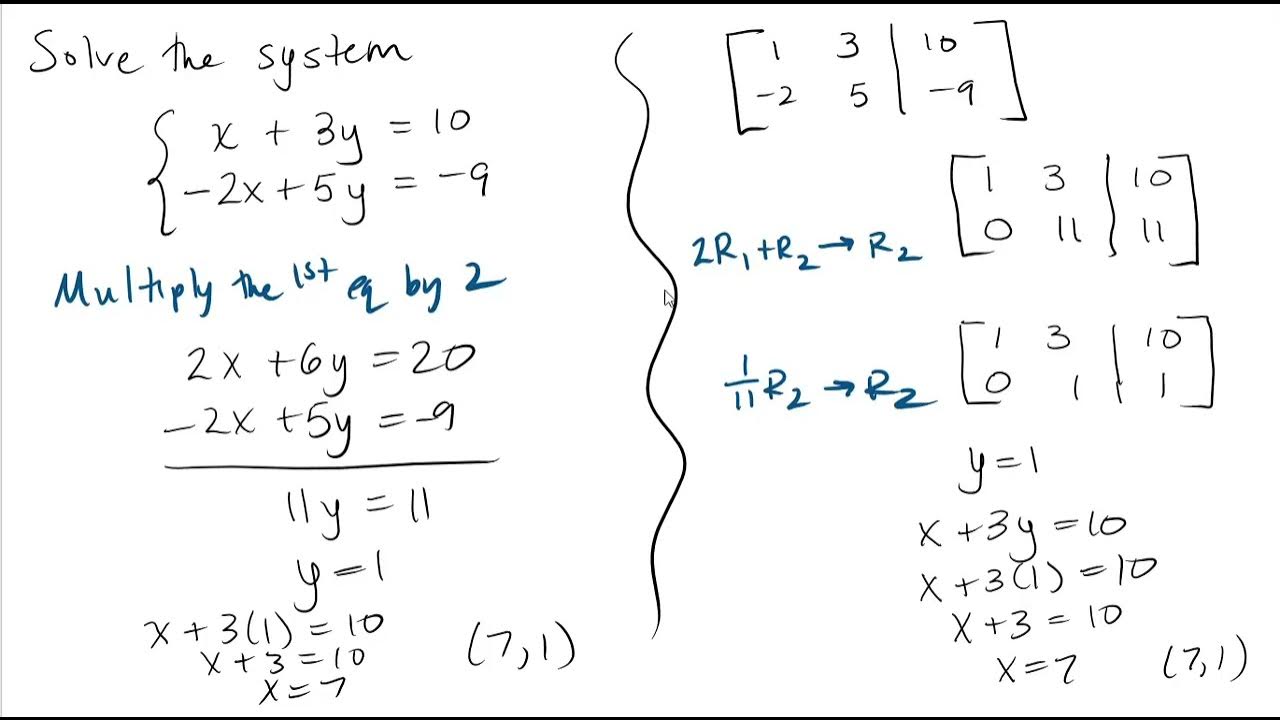 Solve the system
x + 3y = 10
-2x + 5y = -9
Multiply the 1st eq by 2
2x + 6y = 20
-2x + 5y = -9
11y = 11
y = 1
x + 3(1) = 10
x + 3 = 10
x = 7
(7, 1)
1 3 | 10
-2 5 | -9
1 3 | 10
2R₁ + R₂ → R₂ 0 11 | 11
1 3 | 10
1/11 R₂ → R₂ 0 1 | 1
y = 1
x + 3y = 10
x + 3(1) = 10
x + 3 = 10
x = 7 (7, 1)